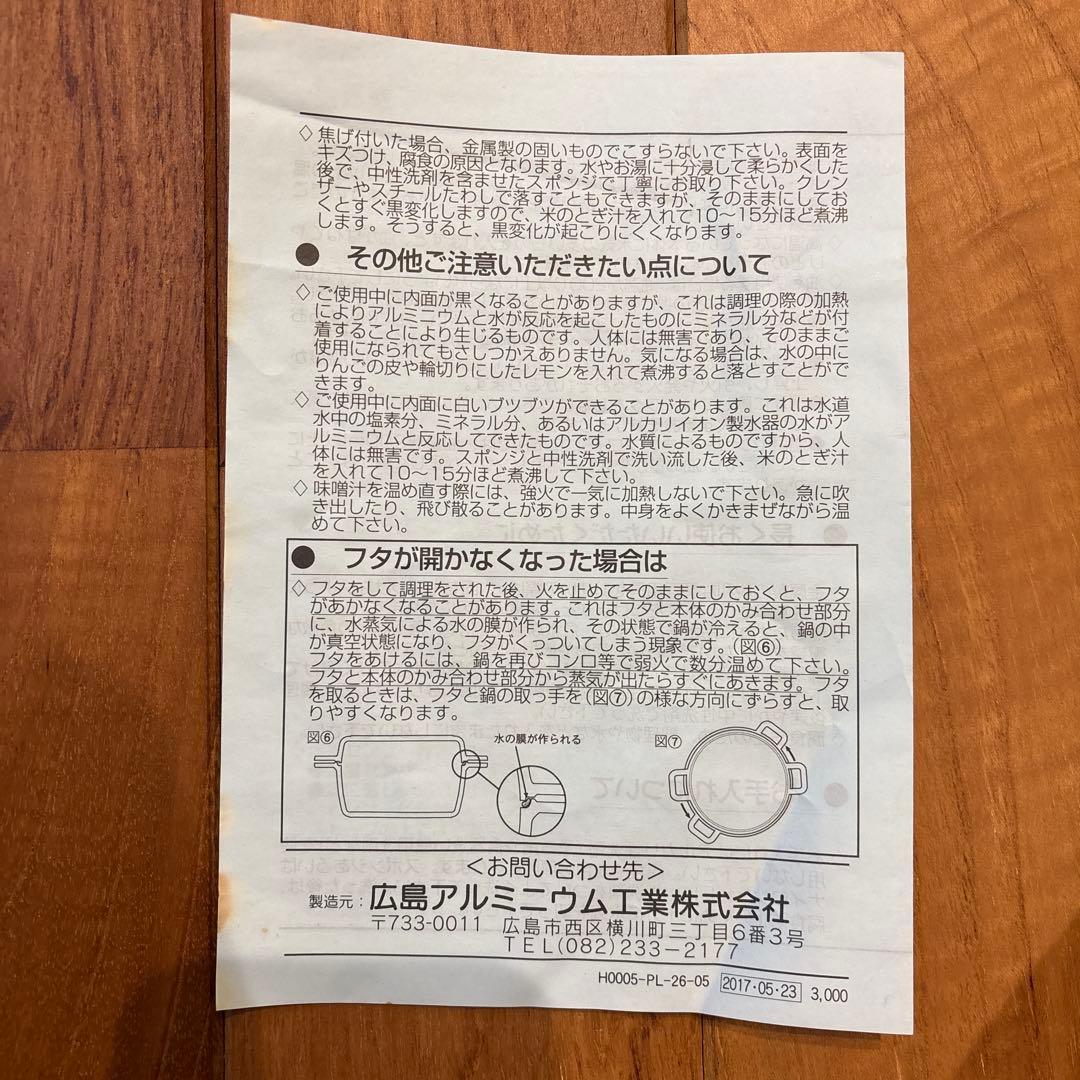 ◇ 焦げ付いた場合、金属製の固いものでこすらないで下さい。表面を
キズつけ、腐食の原因となります。水やお湯に十分浸して柔らかくした
後で、中性洗剤を含ませたスポンジで丁寧にお取り下さい。クレン
ザーやスチールたわしで落すこともできますが、そのままにしてお
くとすぐ黒変化しますので、米のとぎ汁を入れて10〜15分ほど煮沸
します。そうすると、黒変化が起こりにくくなります。
● その他ご注意いただきたい点について
◇ ご使用中に内面が黒くなることがありますが、これは調理の際の加熱
によりアルミニウムと水が反応を起こしたものにミネラル分などが付
着することにより生じるものです。人体には無害であり、そのままご
使用になられてもさしつかえありません。気になる場合は、水の中に
りんごの皮や輪切りにしたレモンを入れて煮沸すると落とすことがで
きます。
◇ ご使用中に内面に白いブツブツができることがあります。これは水道
水中の塩素分、ミネラル分、あるいはアルカリイオン製水器の水がア
ルミニウムと反応してできたものです。水質によるものですから、人
体には無害です。スポンジと中性洗剤で洗い流した後、米のとぎ汁
を入れて10〜15分ほど煮沸して下さい。
◇ 味噌汁を温め直す際には、強火で一気に加熱しないで下さい。急に吹
き出したり、飛び散ることがあります。中身をよくかきまぜながら温
めて下さい。
● フタが開かなくなった場合は
◇ フタをして調理をされた後、火を止めてそのままにしておくと、フタ
があかなくなることがあります。これはフタと本体のかみ合わせ部分
に、水蒸気による水の膜が作られ、その状態で鍋が冷えると、鍋の中
が真空状態になり、フタがくっついてしまう現象です。(図⑥)
フタをあけるには、鍋を再びコンロ等で弱火で数分温めて下さい。
フタと本体のかみ合わせ部分から蒸気が出たらすぐにあきます。フタ
を取るときは、フタと鍋の取っ手を(図⑦)の様な方向にずらすと、取
りやすくなります。
図⑥ 水の膜が作られる 図⑦
<お問い合わせ先>
製造元：広島アルミニウム工業株式会社
〒733-0011 広島市西区横川町三丁目6番3号
TEL(082)233-2177
H0005-PL-26-05 2017・05・23 3,000